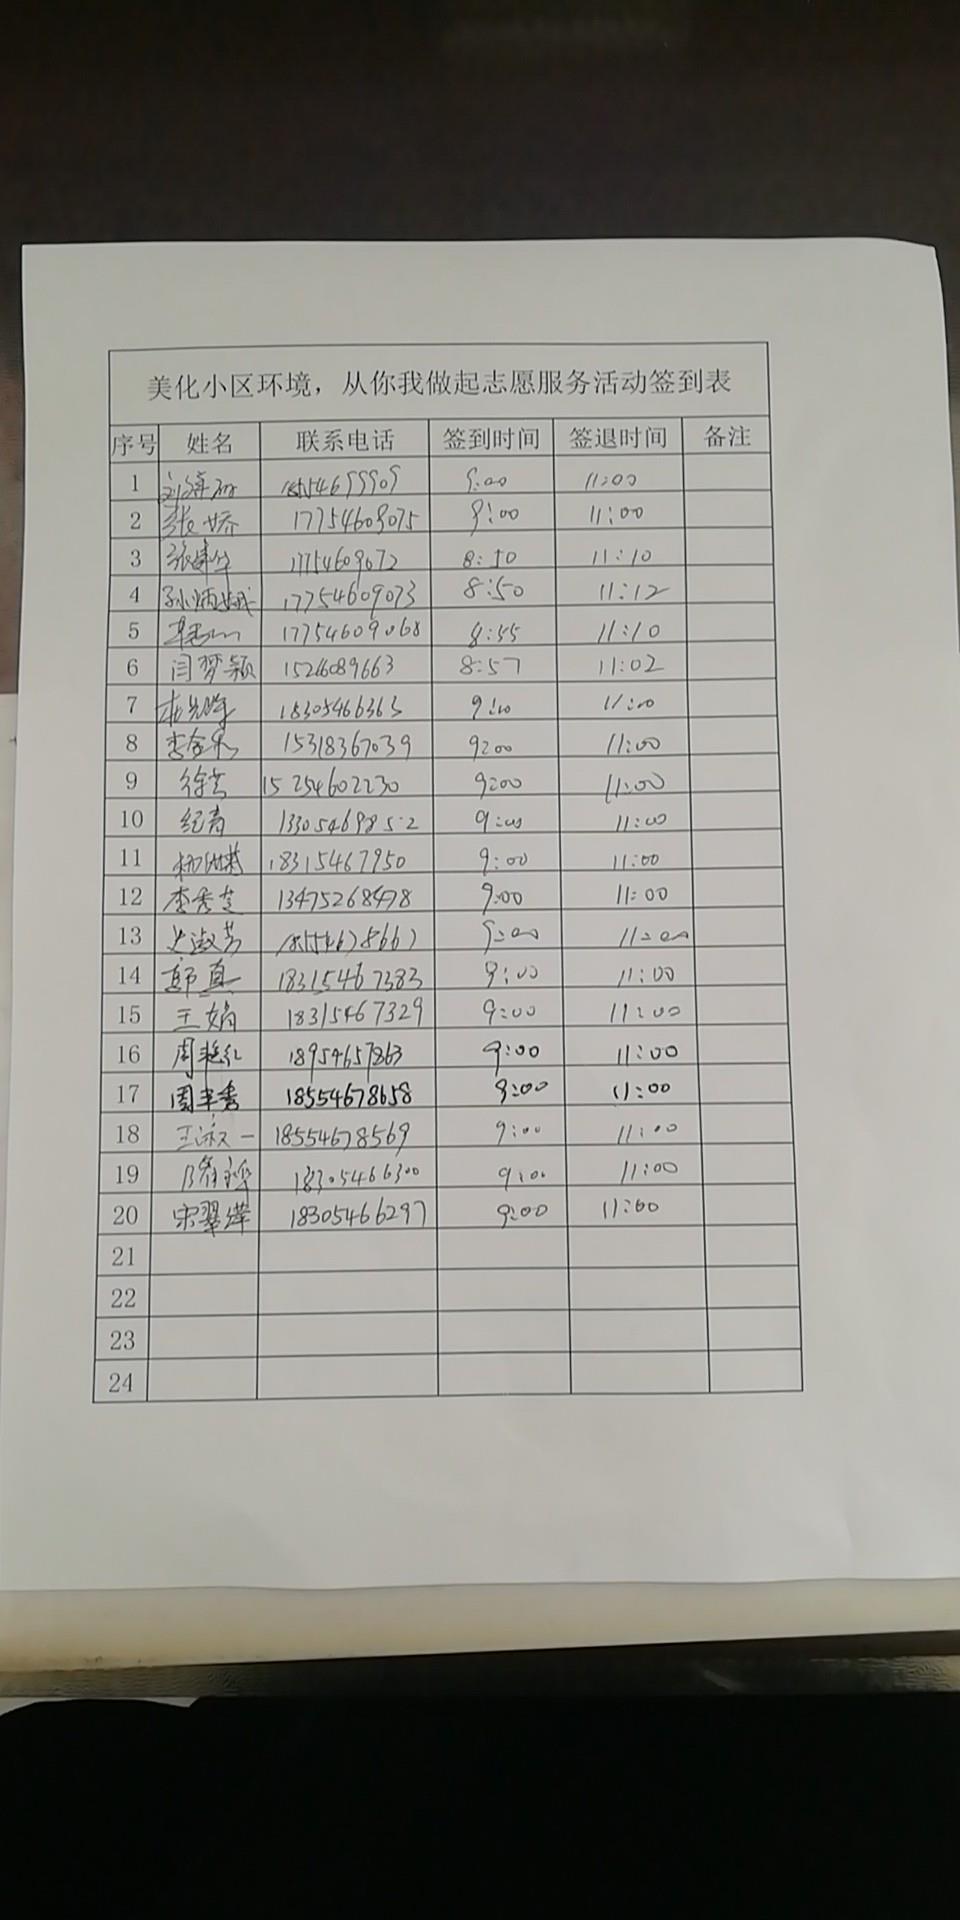 美化小区环境，从你我做起志愿服务活动签到表
序号 姓名 联系电话 签到时间 签退时间 备注
1 9:00 11:00
2 张世娇 17754609075 9:00 11:00
3 张建华 17754609072 8:50 11:10
4 17754609073 8:50 11:12
5 17754609068 8:55 11:10
6 闫梦颖 1526089663 8:57 11:02
7 18305466363 9:00 11:00
8 15318367039 9:00 11:00
9 15254602230 9:00 11:00
10 纪青 13305469852 9:00 11:00
11 18315467950 9:00 11:00
12 李秀芝 13475268478 9:00 11:00
13 9:00 11:00
14 郭真 18315467383 9:00 11:00
15 王娟 18315467329 9:00 11:00
16 周艳红 18954657863 9:00 11:00
17 18554678658 9:00 11:00
18 王淑一 18554678569 9:00 11:00
19 18305466300 9:00 11:00
20 宋翠萍 18305466297 9:00 11:00
21
22
23
24